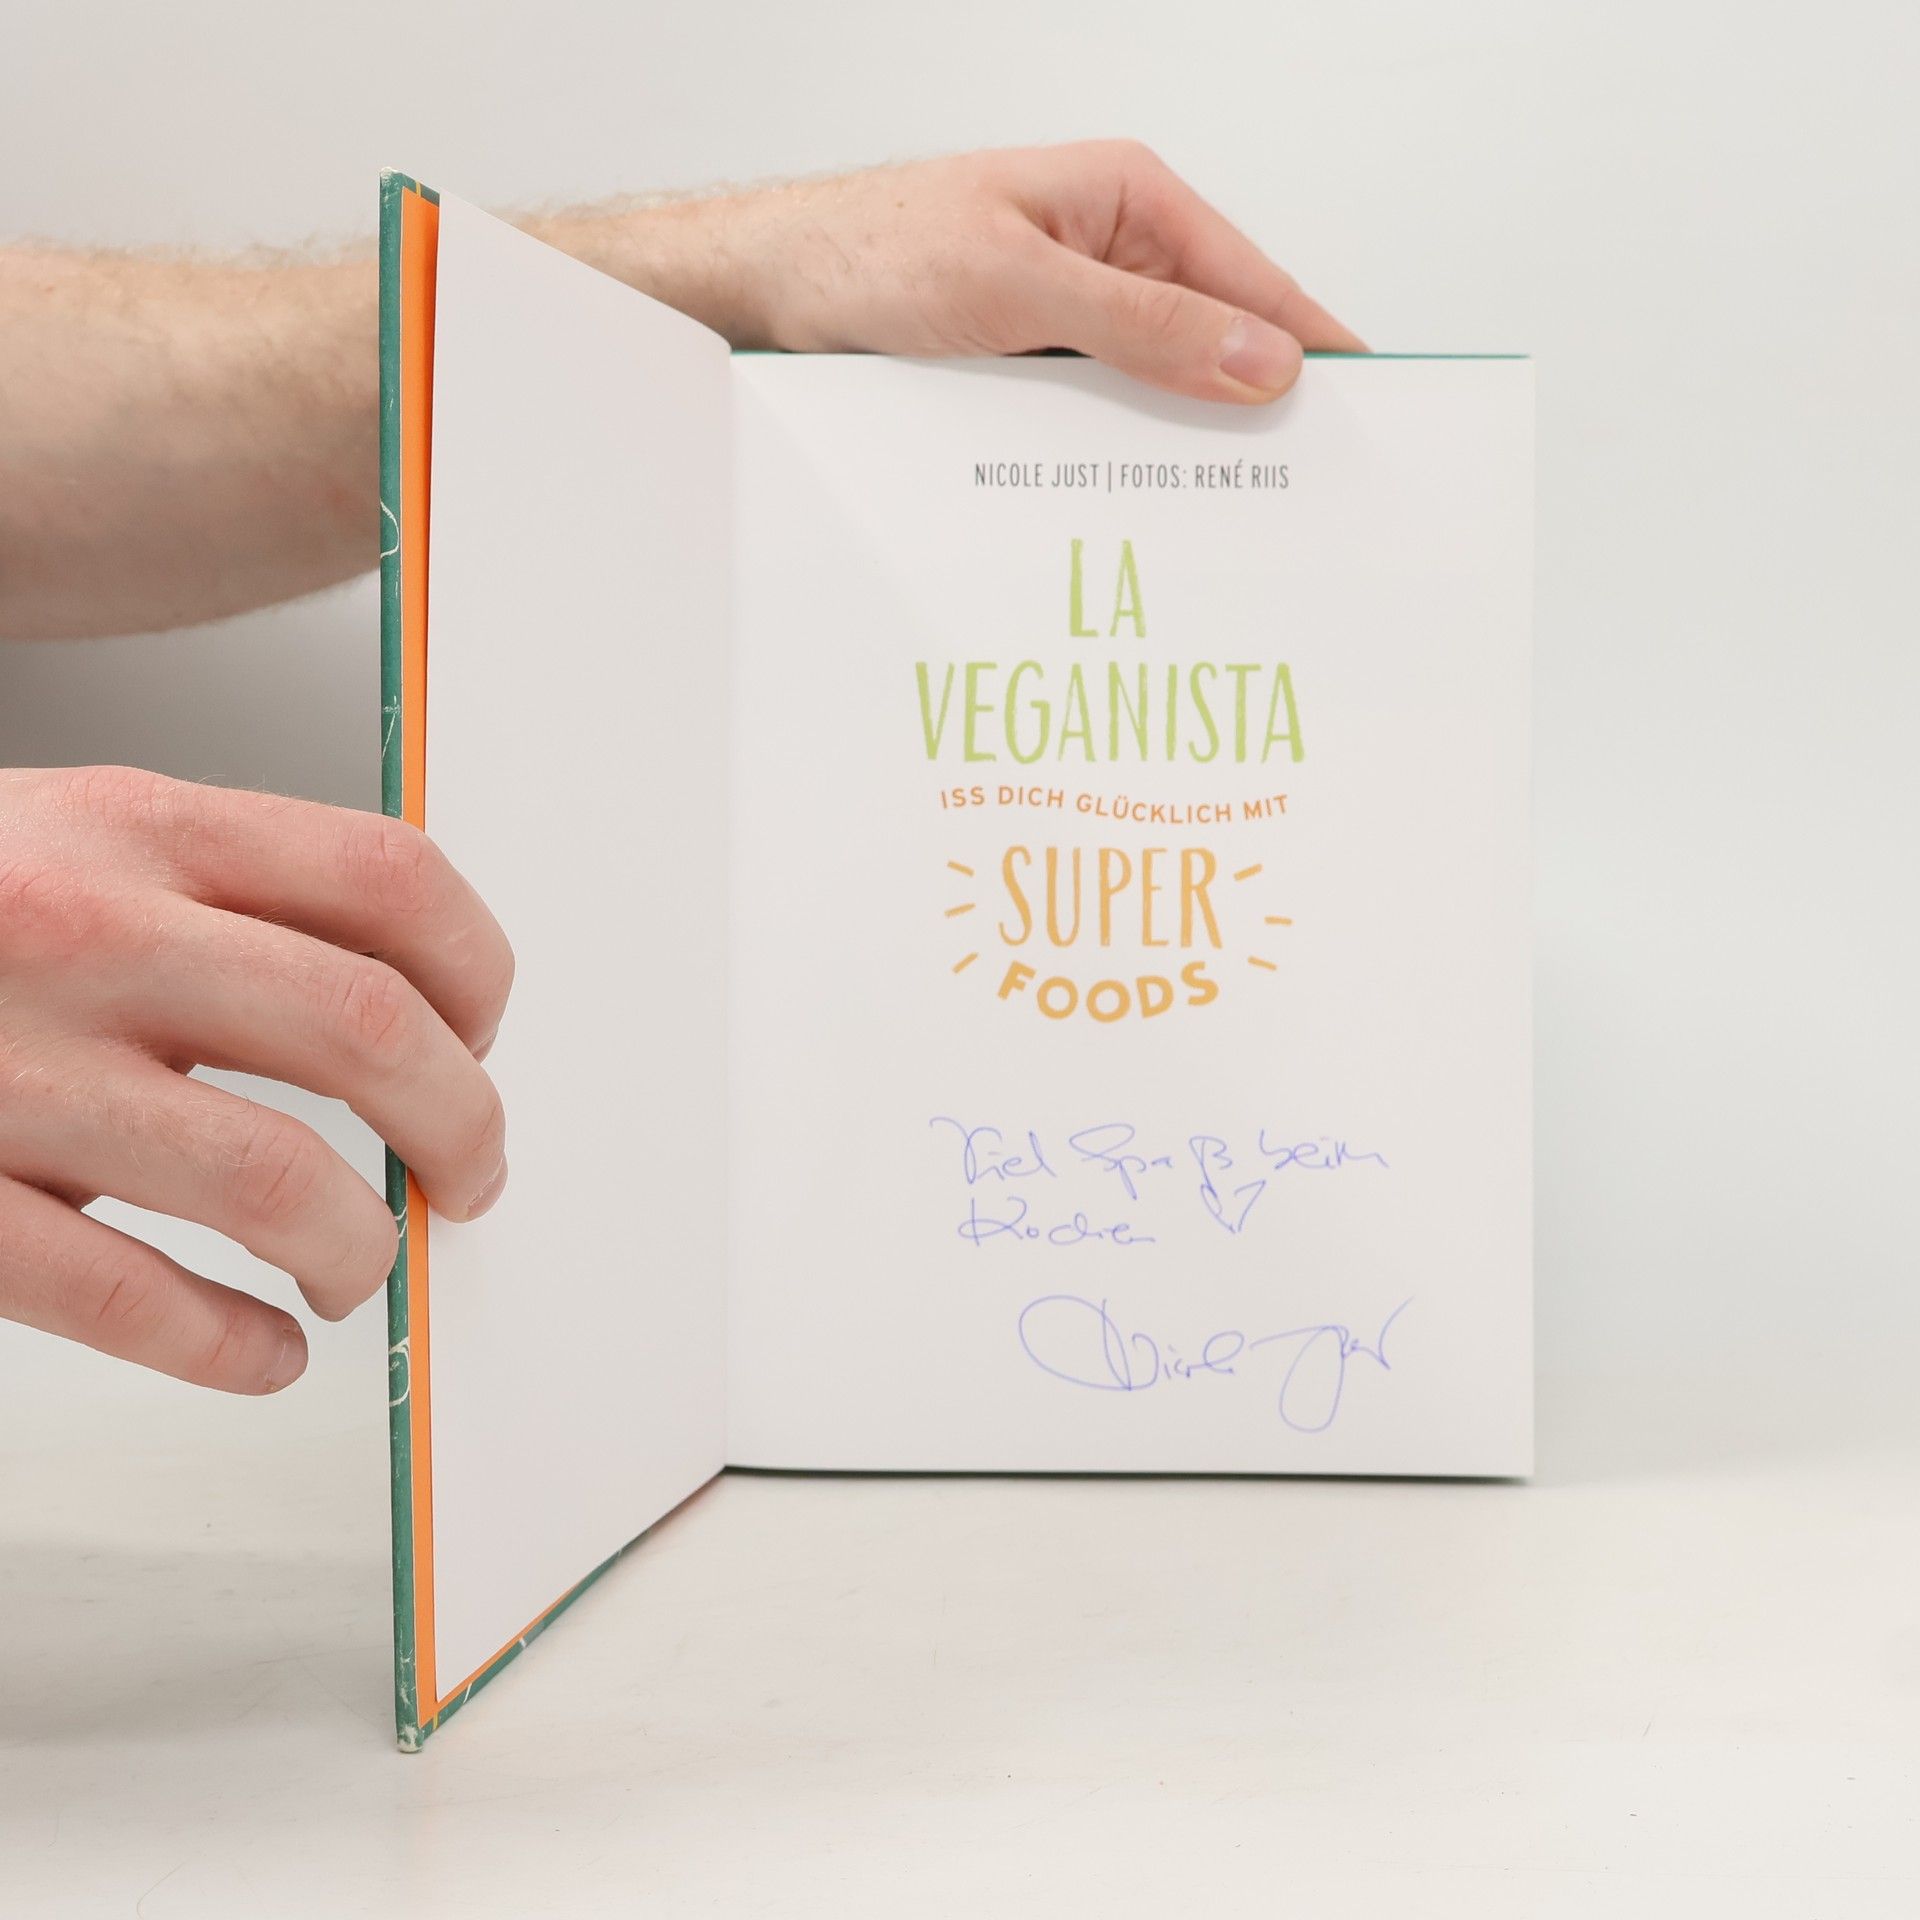 NICOLE JUST | FOTOS: RENÉ RIIS
LA
VEGANISTA
ISS DICH GLÜCKLICH MIT
SUPER
FOODS
Viel Spaß beim
Kochen
Nicole Just